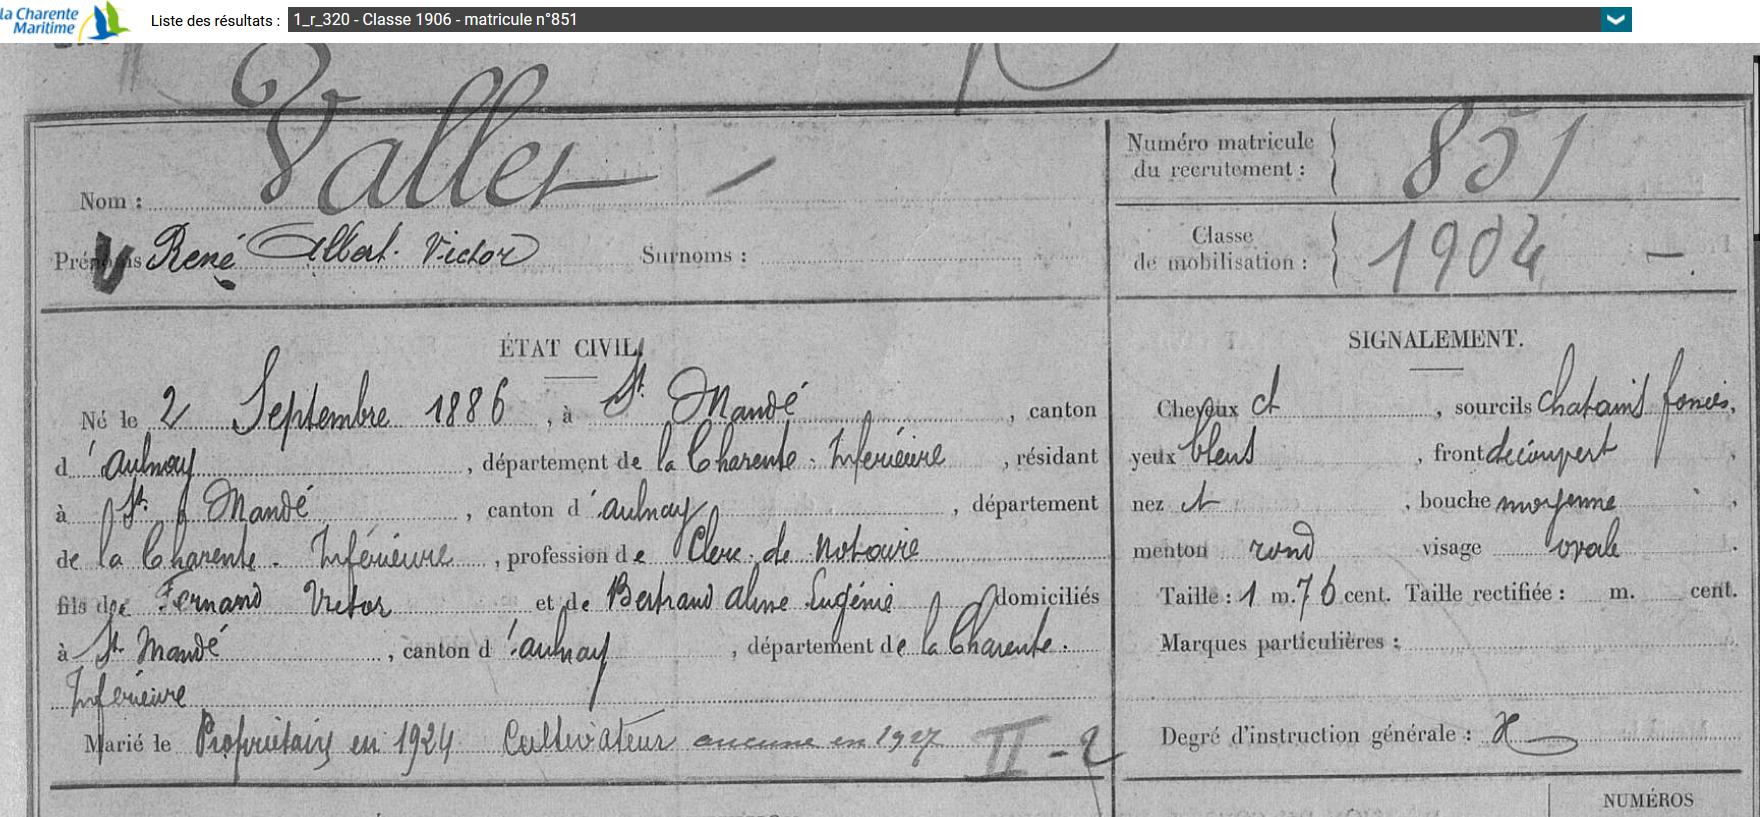 la Charente
Maritime
Liste des résultats : 1_r_320 - Classe 1906 - matricule n°851
Nom : Vallet
Numéro matricule du recrutement : 851
Prénoms René Albert Victor Surnoms :
Classe de mobilisation : 1904
ÉTAT CIVIL.
Né le 2 Septembre 1886, à St Mandé, canton
d'aulnay, département de la Charente-Inférieure, résidant
à St Mandé, canton d'aulnay, département
de la Charente-Inférieure, profession de Clerc de Notaire
fils de Fernand Victor et de Bertrand aline Eugénie domiciliés
à St Mandé, canton d'aulnay, département de la Charente-
Inférieure
Marié le Propriétaire en 1924 Cultivateur aucune en 1927 II - 2
SIGNALEMENT.
Cheveux ct, sourcils chatains foncés,
yeux bleus, front découvert,
nez ct, bouche moyenne,
menton rond visage ovale.
Taille : 1 m. 76 cent. Taille rectifiée : m. cent.
Marques particulières :
Degré d'instruction générale :
NUMÉROS